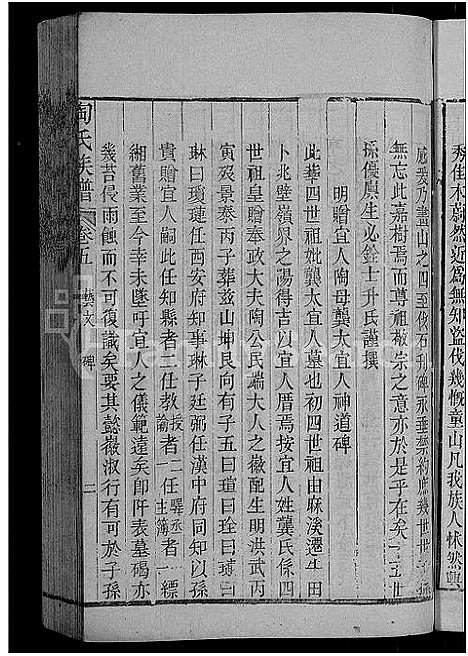 秀佳木蔚然近為無知盜伐幾慨童山凡我族人怵然興
感爰乃畫山之四至伐石刊碑永垂禁約庶幾世世子孫
無忘此嘉樹焉而尊祖敬宗之意亦於是乎在矣十五世
孫優廩生必銓士升氏謹撰
明贈宜人陶母龔太宜人神道碑
此塋四世祖妣龔太宜人墓也初四世祖由麻溪遷生田
卜兆壁嶺界之陽得吉以伐宜人厝焉按宜人姓龔氏係四
世祖皇贈奉政大夫陶公民瑞大人之徽配生明洪武丙
寅歿景泰丙子葬茲山坤艮向子五曰瑄曰琮曰
琳曰瓊璉任西安府知事琳子廷弼任漢中府同知以孫
貴贈宜人嗣此任知縣者二任教授諭者二任驛丞主簿者一縹
緗舊業至今幸未墜吁宜人之儀範遠矣即阡表墓碣亦
幾苔侵雨蝕而不可復識矣要其懿徽淑行有可於子孫
陶氏族譜
卷五
藝文
碑
二